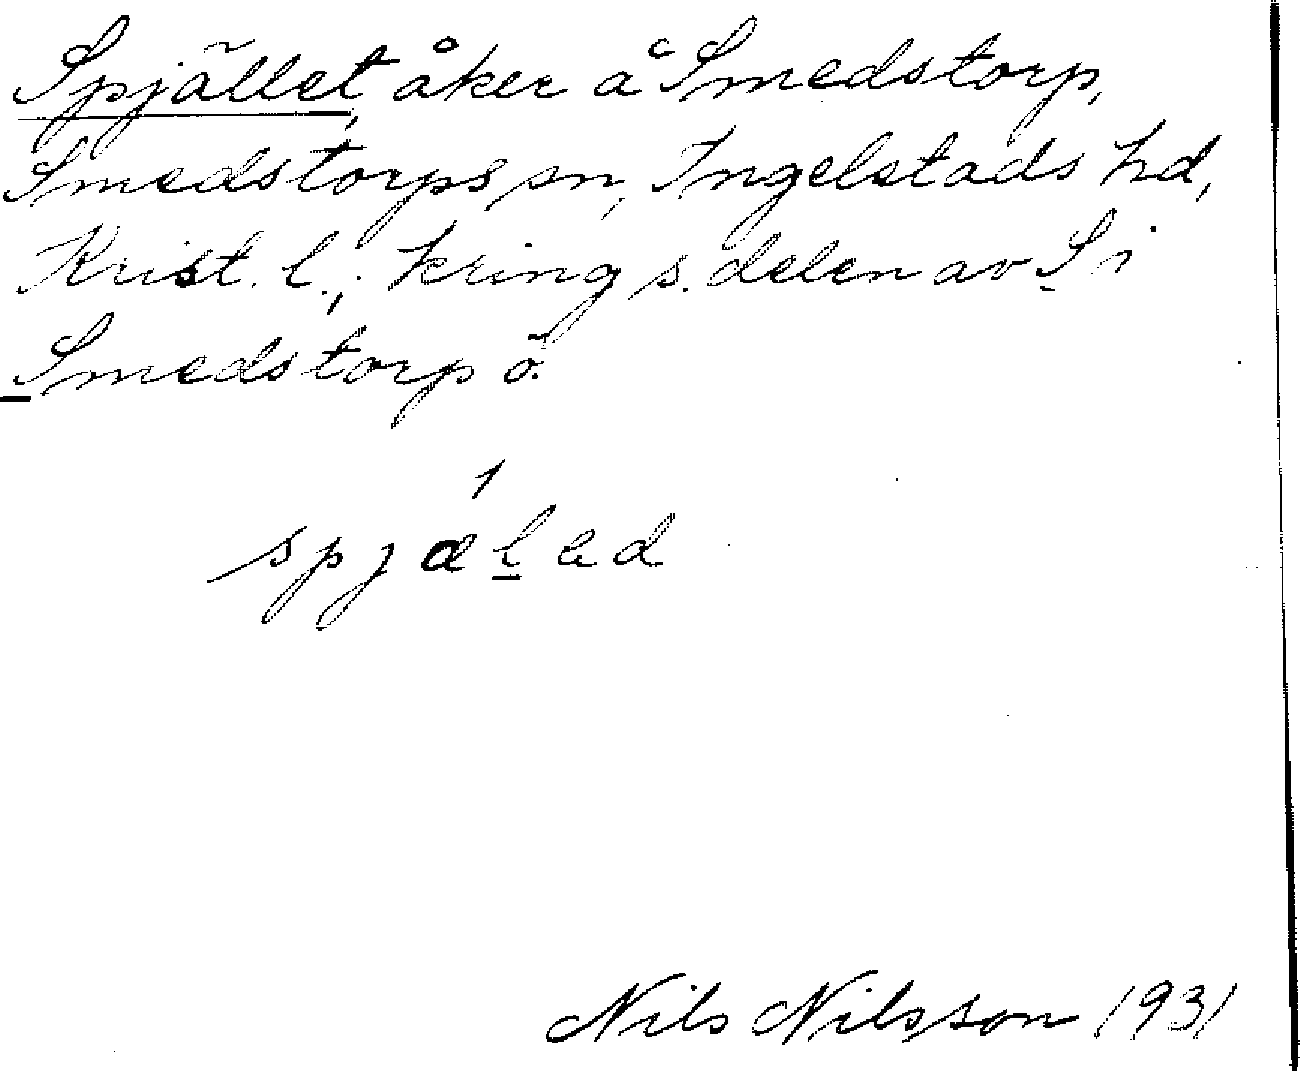 Spjället, åker å Smedstorp,
Smedstorps sn, Ingelstads hd,
Krist. l.; kring s. delen av S i
Smedstorp ö.
spjælad
Nils Nilsson 1931